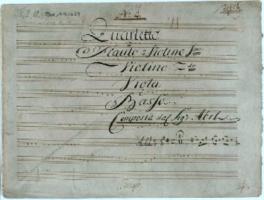 Quartetto
a
Flauto o Violino 1mo
Violino 2do
Viola
e
Basso
Composta dal Sigr. Abel